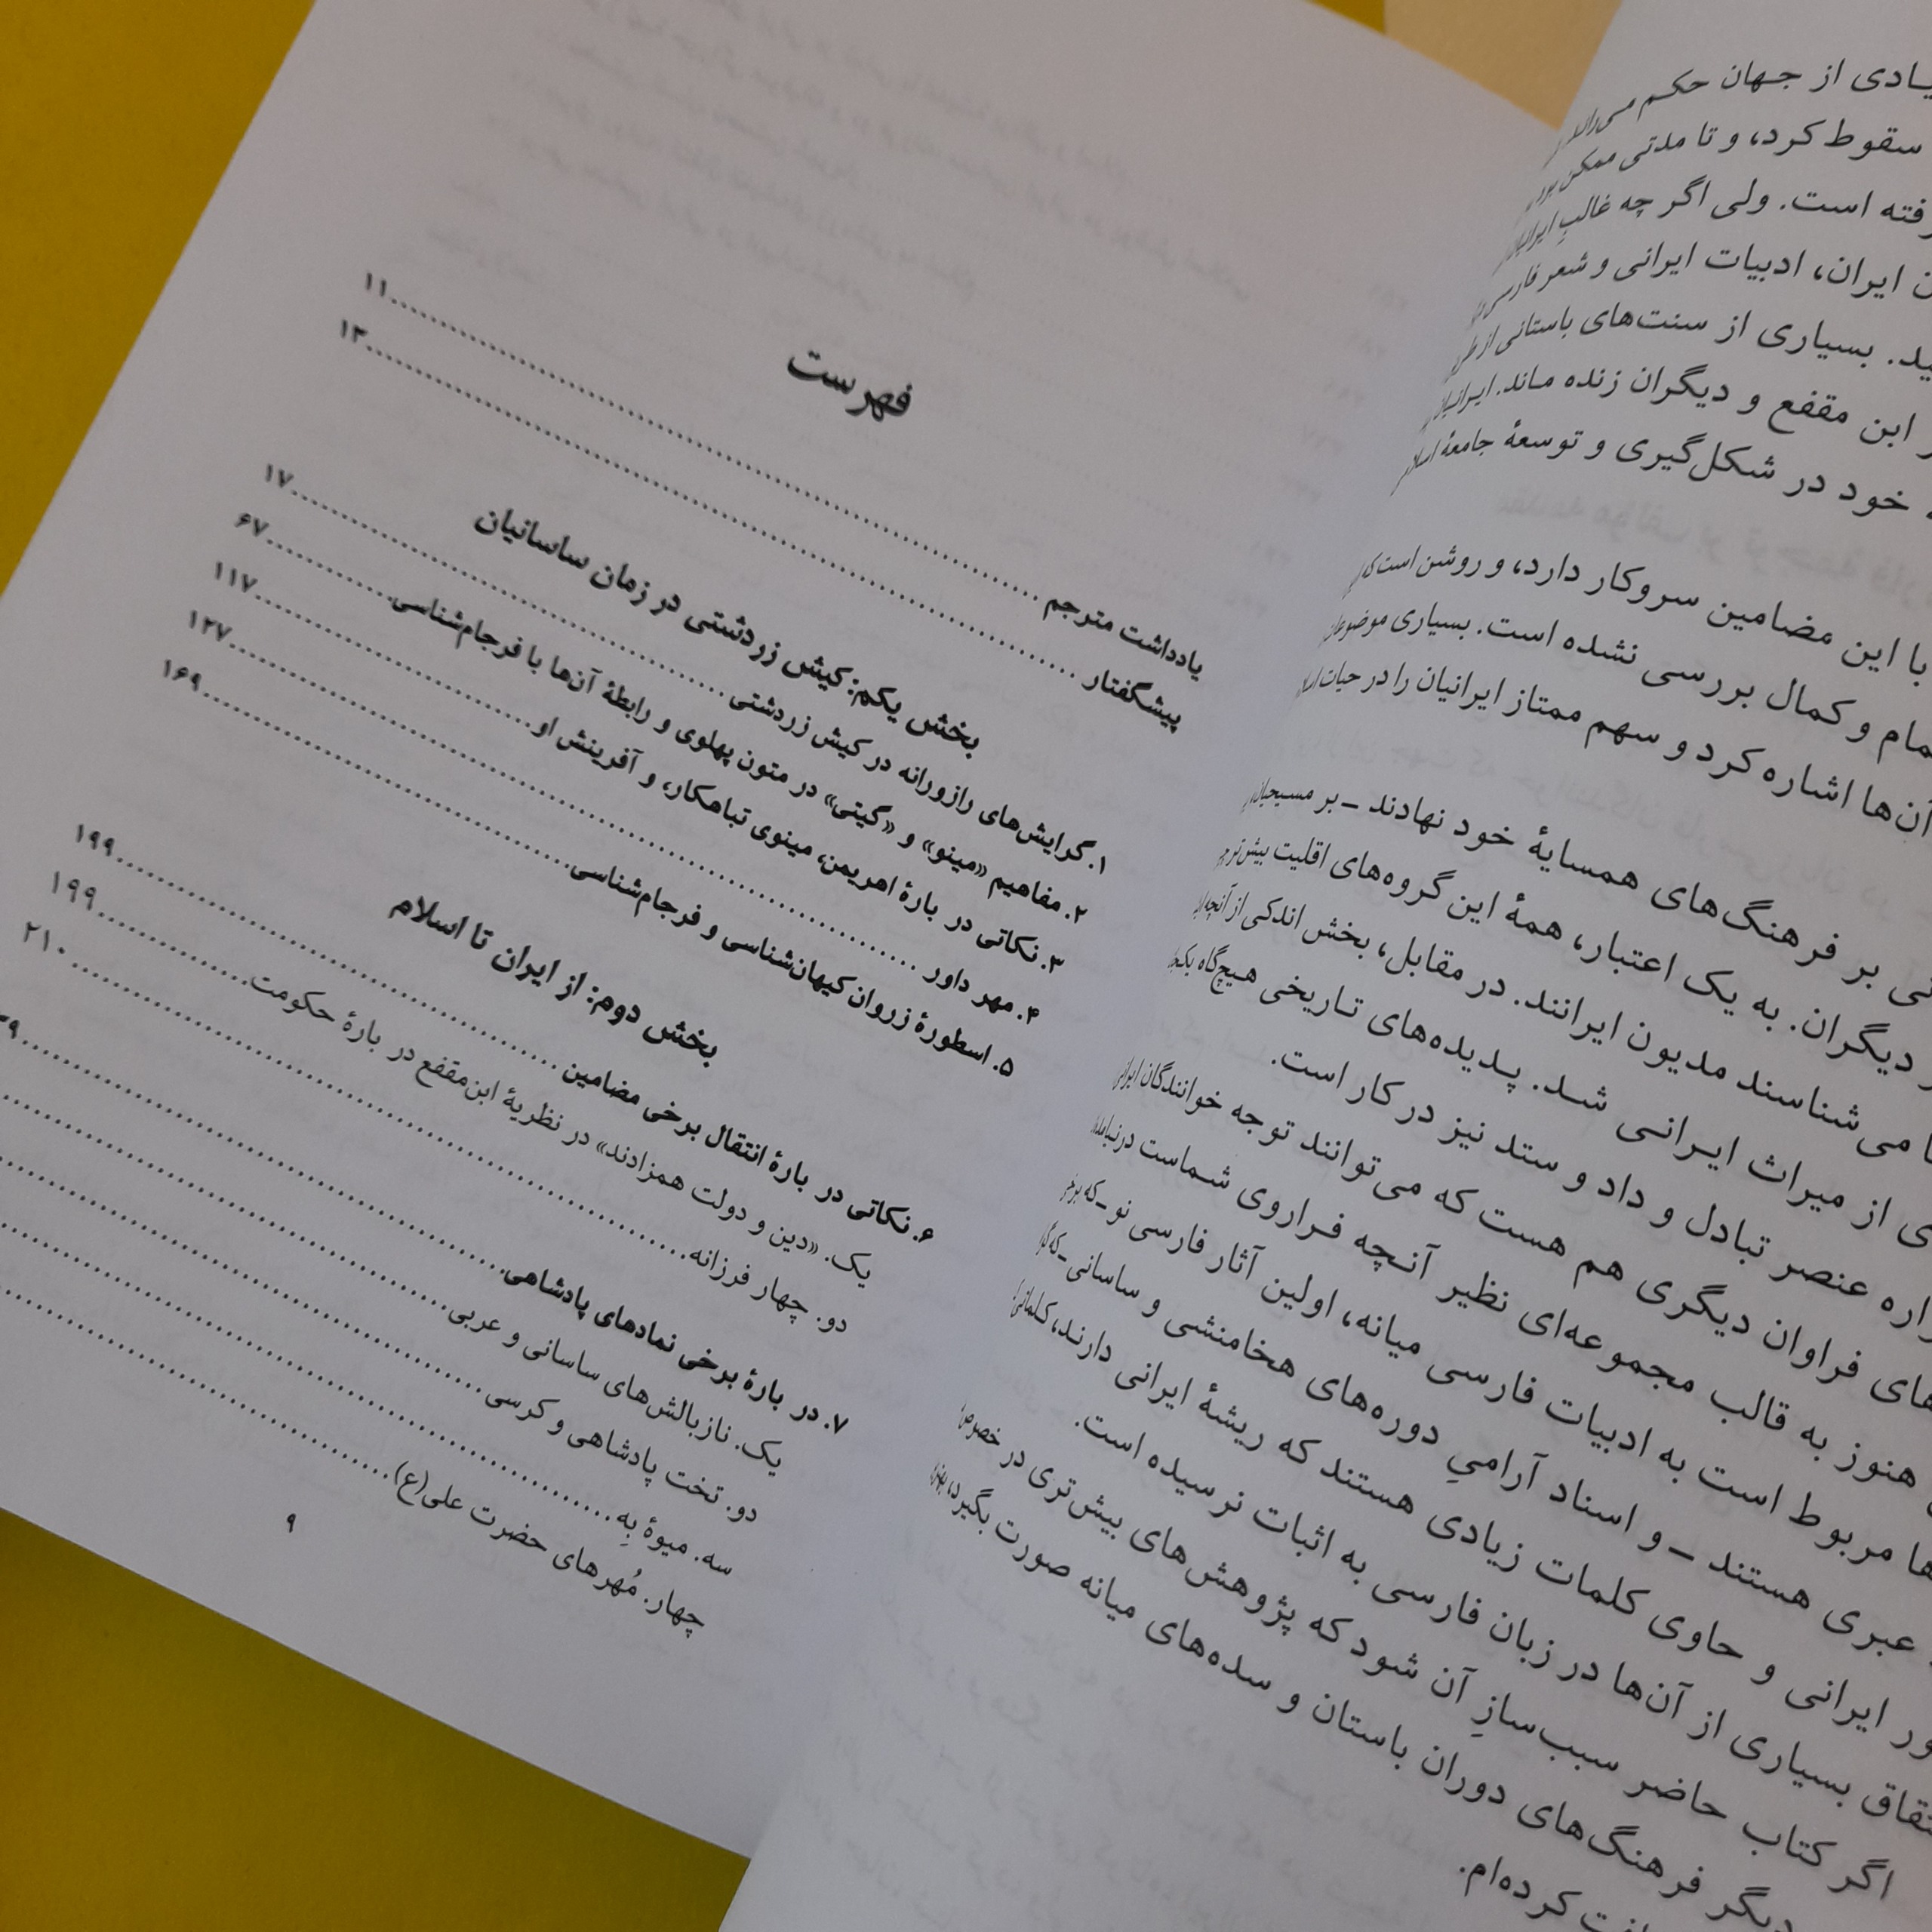 یادی از جهان حکم می‌راند
سقوط کرد، و تا مدتی ممکن بود
فته است. ولی اگر چه غالبِ ایرانیان
ایران، ادبیات ایرانی و شعر فارسی
ید. بسیاری از سنت‌های باستانی از طریق
ابن مقفع و دیگران زنده ماند. ایرانیان
خود در شکل‌گیری و توسعهٔ جامعهٔ
با این مضامین سروکار دارد، و روشن است که
مام و کمال بررسی نشده است. بسیاری
آن‌ها اشاره کرد و سهم ممتاز ایرانیان را در حیات
نی بر فرهنگ‌های همسایهٔ خود نهادند ـ بر مسیحیان
دیگران. به یک اعتبار، همهٔ این گروه‌های اقلیت بیش‌تر
می‌شناسند مدیون ایرانند. در مقابل، بخش اندکی از آنچه
ی از میراث ایرانی شد. پدیده‌های تاریخی هیچ‌گاه
اره عنصر تبادل و داد و ستد نیز در کار است.
های فراوان دیگری هم هست که می‌توانند توجه خوانندگان ایرانی
هنوز به قالب مجموعه‌ای نظیر آنچه فراروی شماست درنیامده
ها مربوط است به ادبیات فارسی میانه، اولین آثار فارسی نو ـ که
عبری هستند ـ و اسناد آرامیِ دوره‌های هخامنشی و ساسانی ـ که
ور ایرانی و حاوی کلمات زیادی هستند که ریشهٔ ایرانی دارند،
قاق بسیاری از آن‌ها در زبان فارسی به اثبات نرسیده است.
اگر کتاب حاضر سبب‌سازِ آن شود که پژوهش‌های بیش‌تری در خصوص
دیگر فرهنگ‌های دوران باستان و سده‌های میانه صورت بگیرد،
کرده‌ام.
فهرست
یادداشت مترجم ........ ۱۱
پیشگفتار ........ ۱۳
بخش یکم: کیش زردشتی در زمان ساسانیان
۱. گرایش‌های رازورانه در کیش زردشتی ........ ۱۷
۲. مفاهیم «مینو» و «گیتی» در متون پهلوی و رابطهٔ آن‌ها با فرجام‌شناسی ........ ۶۷
۳. نکاتی در بارهٔ اهریمن، مینوی تباهکار، و آفرینش او ........ ۱۱۷
۴. مهر داور ........ ۱۲۷
۵. اسطورهٔ زروان کیهان‌شناسی و فرجام‌شناسی ........ ۱۶۹
بخش دوم: از ایران تا اسلام
۶. نکاتی در بارهٔ انتقال برخی مضامین ........ ۱۹۹
یک. «دین و دولت همزادند» در نظریهٔ ابن‌مقفع در بارهٔ حکومت ........ ۱۹۹
دو. چهار فرزانه ........ ۲۱۰
۷. در بارهٔ برخی نمادهای پادشاهی ........
یک. نازبالش‌های ساسانی و عربی ........
دو. تخت پادشاهی و کرسی ........
سه. میوهٔ بِه ........
چهار. مُهرهای حضرت علی(ع) ........
۹